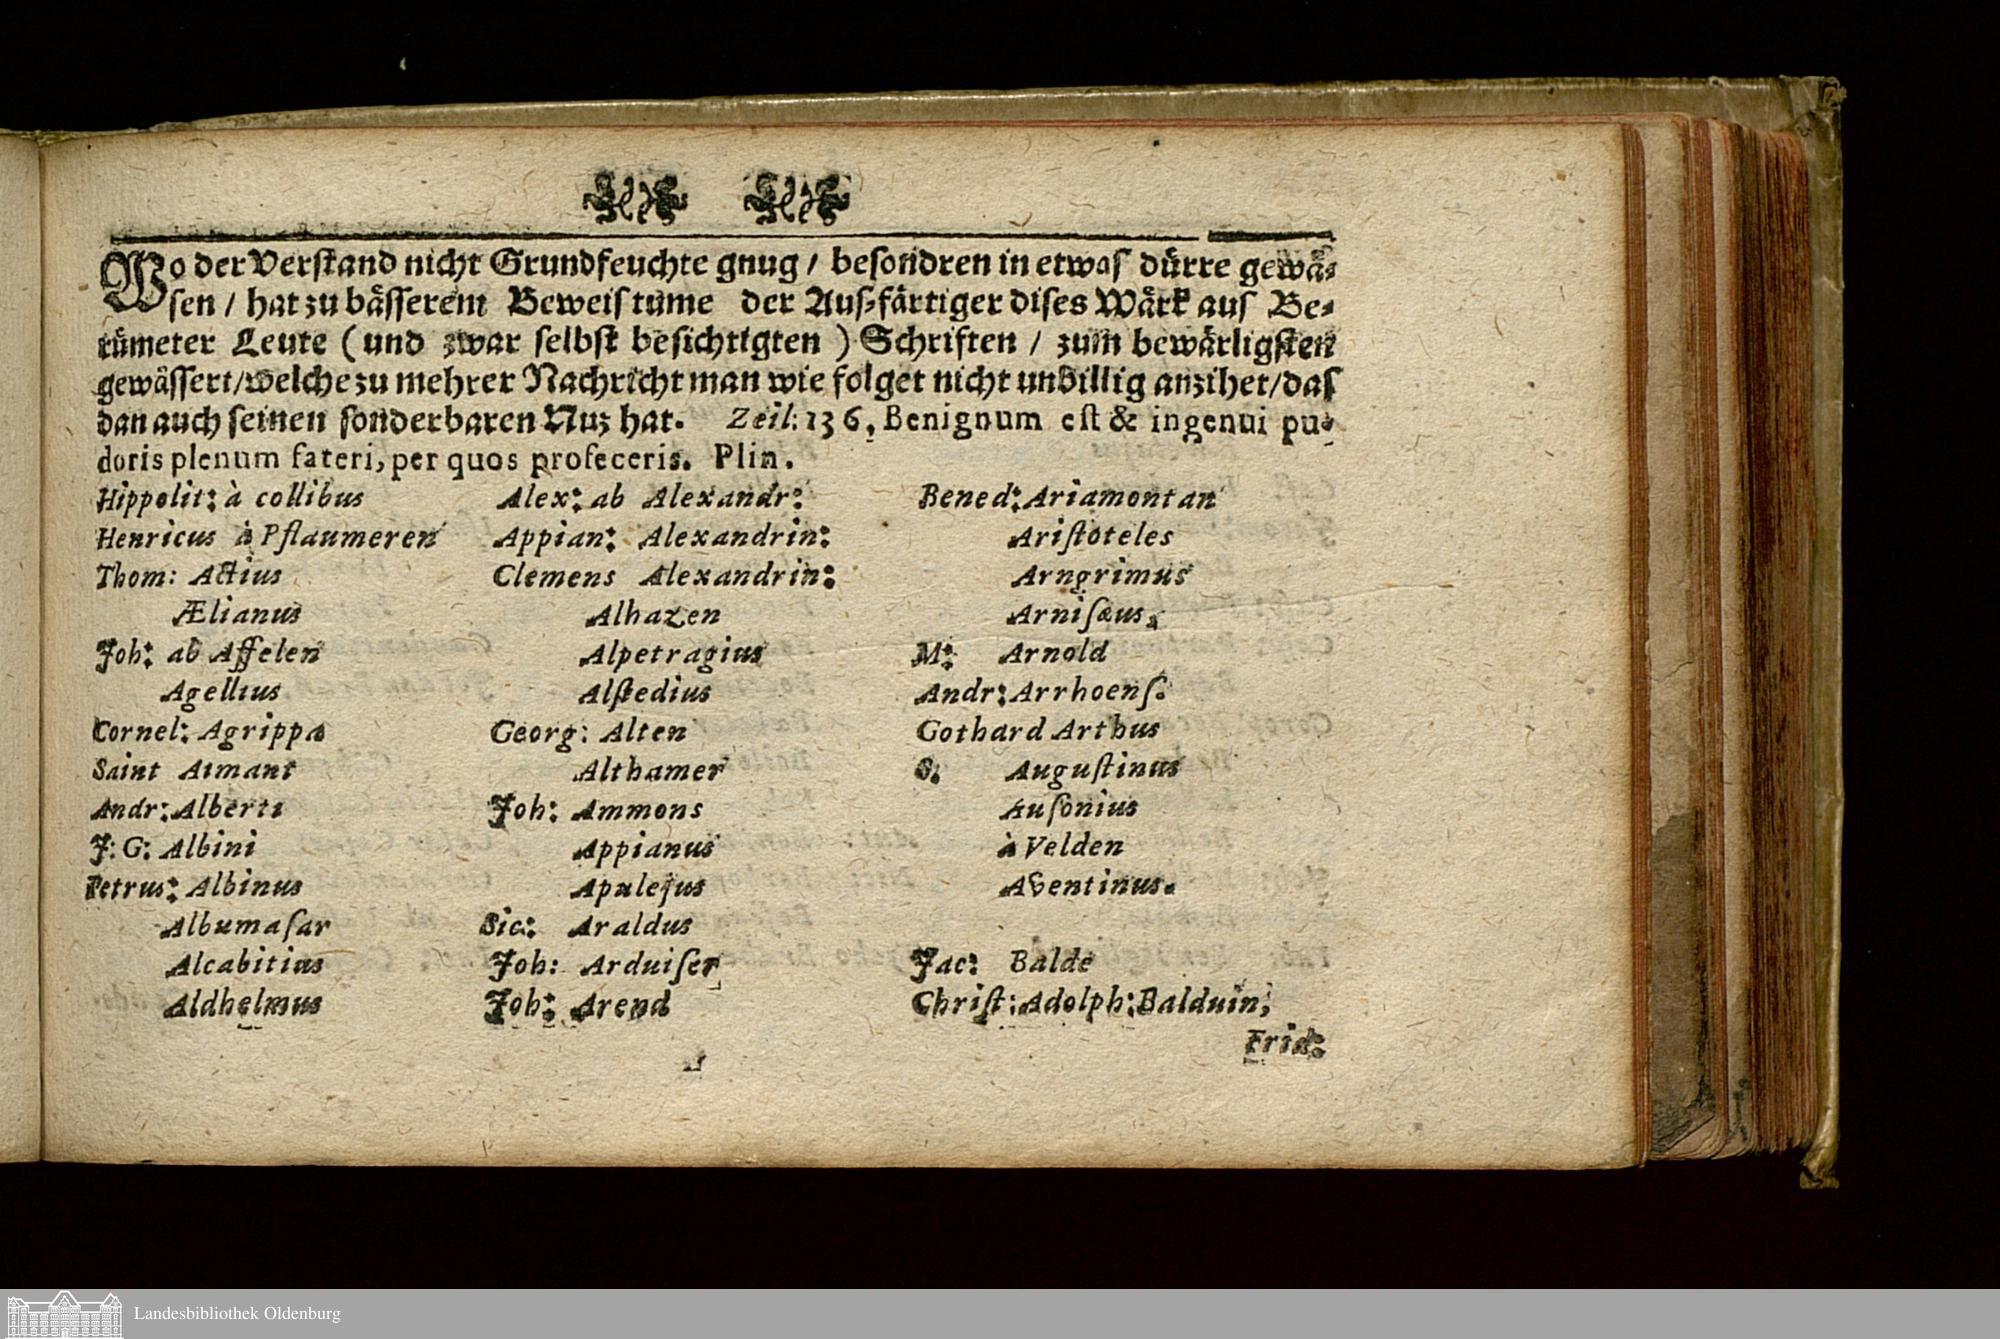 Wo der Verstand nicht Grundfeuchte gnug / besondren in etwas dürre gewä⸗
sen / hat zu bässerem Beweistume der Ausfärtiger dises Wärk aus Be⸗
rümeter Leute (und zwar selbst besichtigten) Schriften / zum bewärligsten
gewässert/welche zu mehrer Nachricht man wie folget nicht unbillig anzihet/das
dan auch seinen sonderbaren Nuz hat. Zeil: 136, Benignum est & ingenui pu⸗
doris plenum fateri, per quos profeceris. Plin.
Hippolit: à collibus
Henricus à Pflaumeren
Thom: Actius
Ælianus
Joh: ab Affelen
Agellius
Cornel: Agrippa
Saint Aimant
Andr: Alberti
J: G: Albini
Petrus: Albinus
Albumaſar
Alcabitius
Aldhelmus
Alex: ab Alexandr:
Appian: Alexandrin:
Clemens Alexandrin:
Alhazen
Alpetragius
Alſtedius
Georg: Alten
Althamer
Joh: Ammons
Appianus
Apulejus
Sic: Araldus
Joh: Arduiſer
Joh: Arend
Bened: Ariamontan
Ariſtoteles
Arngrimus
Arniſæus.
M: Arnold
Andr: Arrhoenſ.
Gothard Arthus
S. Auguſtinus
Auſonius
à Velden
Aventinus.
Jac: Balde
Chriſt: Adolph: Balduin,
Frid:
Landesbibliothek Oldenburg